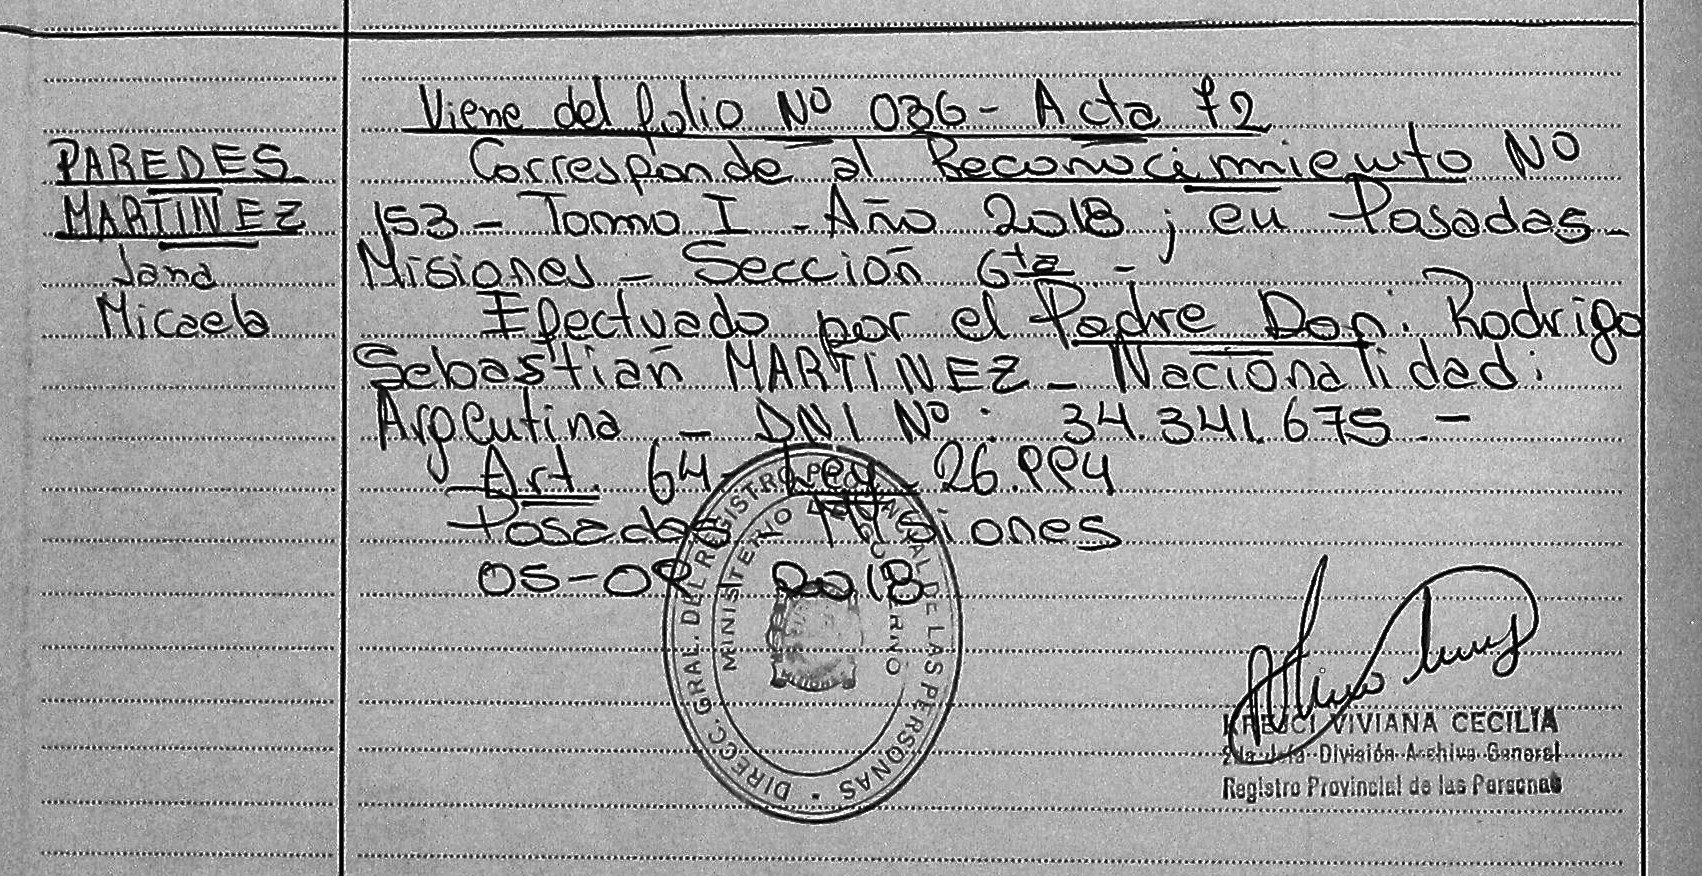 Viene del folio Nº 036 - Acta 72
PAREDES
MARTINEZ
Jana
Micaela
Corresponde al Reconocimiento Nº
153 - Tomo I - Año 2018 ; en Posadas -
Misiones - Sección 6ta -
Efectuado por el Padre Don: Rodrigo
Sebastian MARTINEZ - Nacionalidad:
Argentina - DNI Nº: 34.341.675. -
Art. 64 - Ley 26.994
Posadas Misiones
05-02 2018
DIRECC. GRAL. DEL REGISTRO PROVINCIAL DE LAS PERSONAS
MINISTERIO DE GOBIERNO
KREJCI VIVIANA CECILIA
2da Jefa División Archivo General
Registro Provincial de las Personas